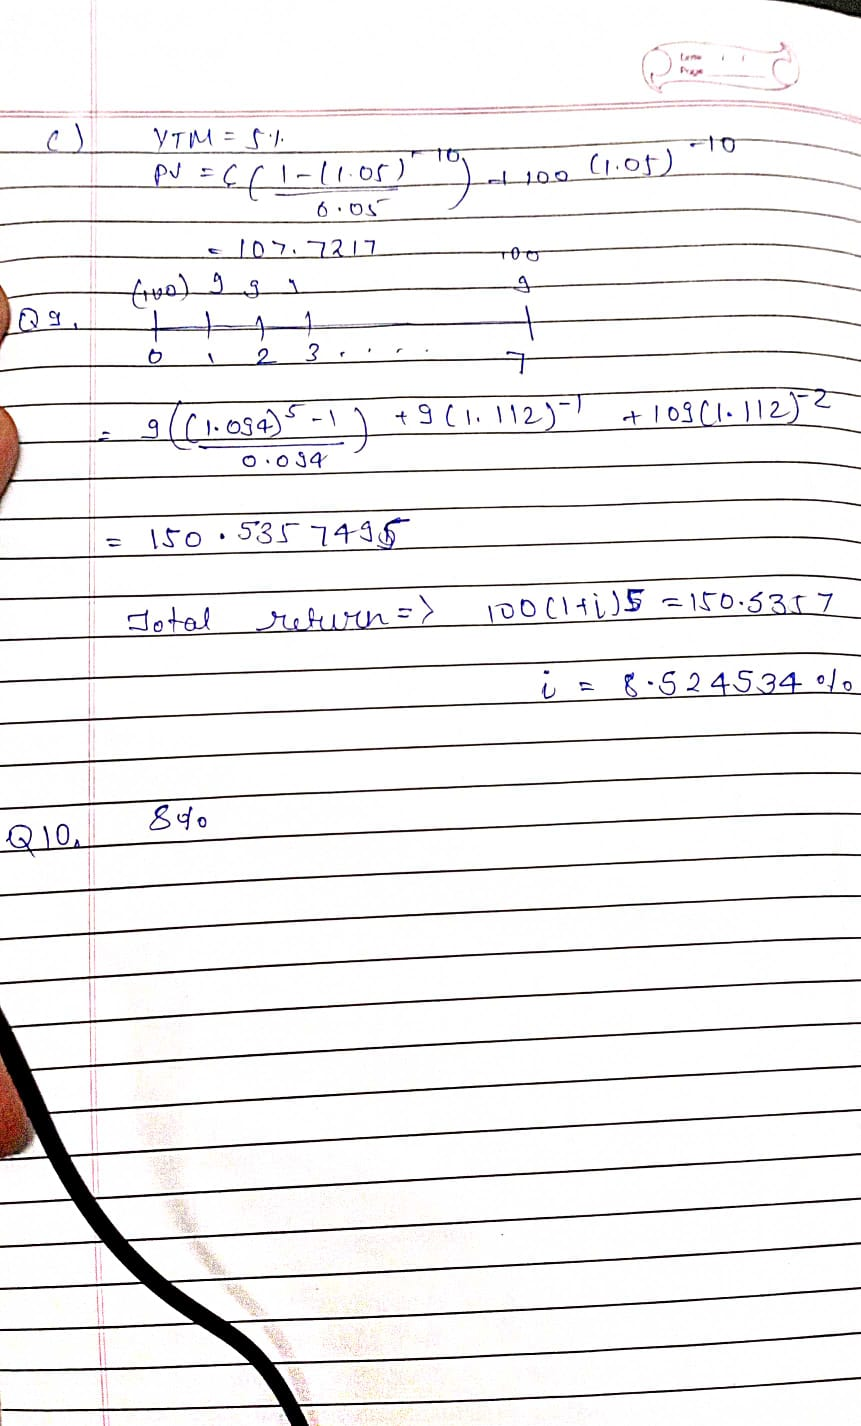 c) YTM = 5%
PV = 6 ( (1-(1.05)^-10) / 0.05 ) + 100 (1.05)^-10
= 107.7217
100
(100) 9 9 9 9
Q9.
0 1 2 3 . . . . 7
= 9 ( ((1.094)^5 - 1) / 0.094 ) + 9 (1.112)^-1 + 109 (1.112)^-2
= 150.53574955
Total return => 100 (1+i)5 = 150.5357
i = 8.524534 %
Q10. 8%